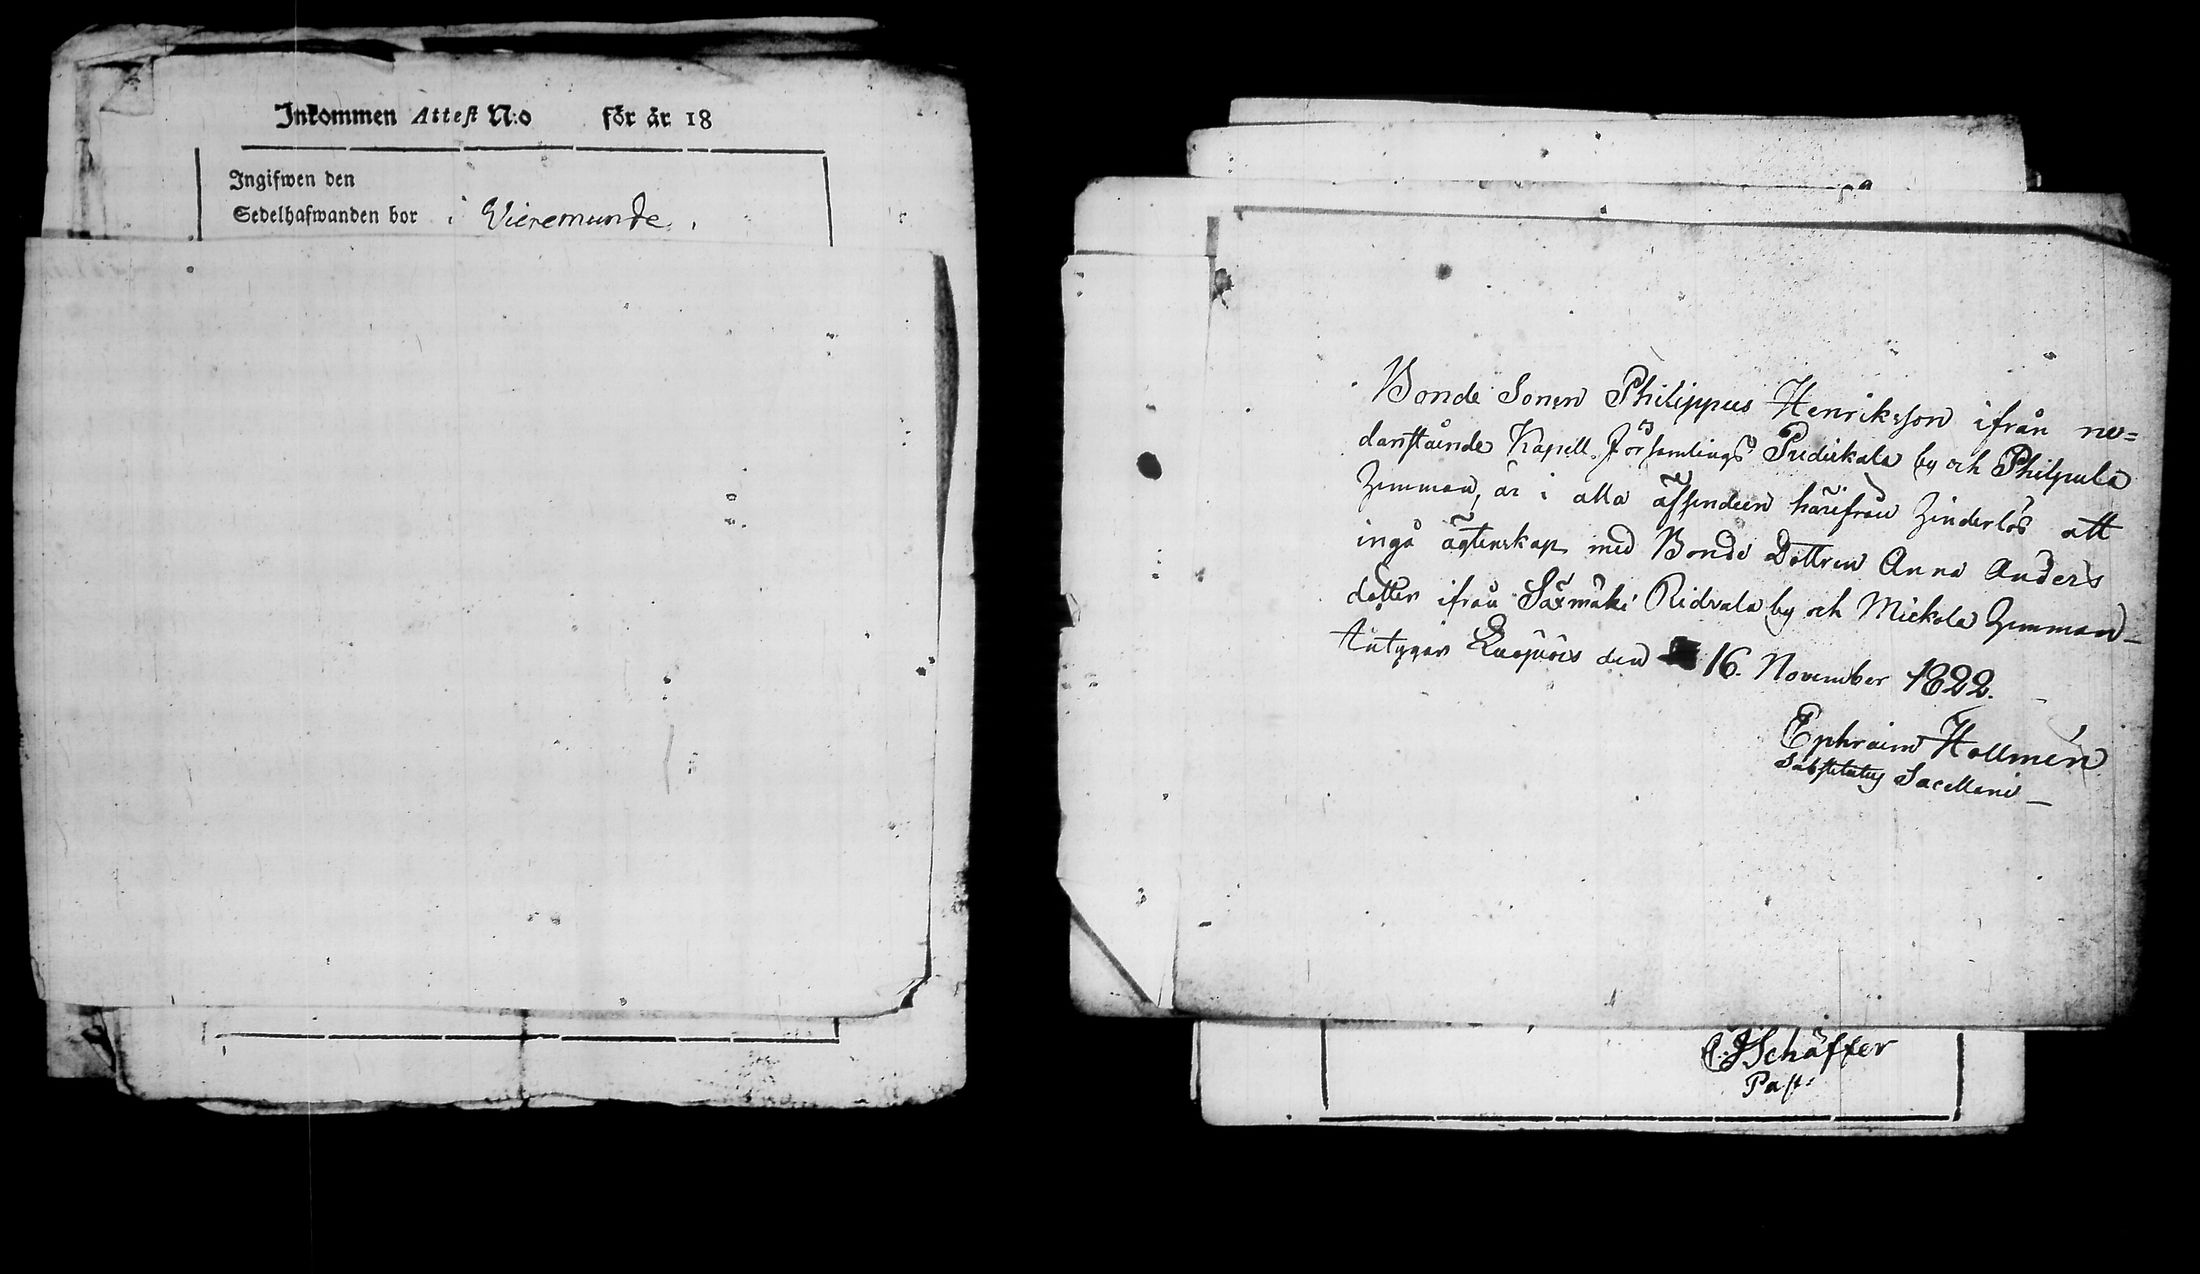 Inkommen Attest N:o för år 18
Ingifwen den
Sedelhafwanden bor i Vieremunde.
Bonde Sonen Philippus Henriksson ifrån ne=
danstående Kapell Församlings Pudikala by och Philpula
hemman, är i alla afseenden härifrån hinderlös att
ingå ägtenskap med Bonde Dottren Anna Anders
dotter ifrån Säxmäki Ridvala by och Mickola hemman_
betygar den 16. November 1822.
Ephraim Hollmén
Substitutus Sacellani_
Schäffer
Past: